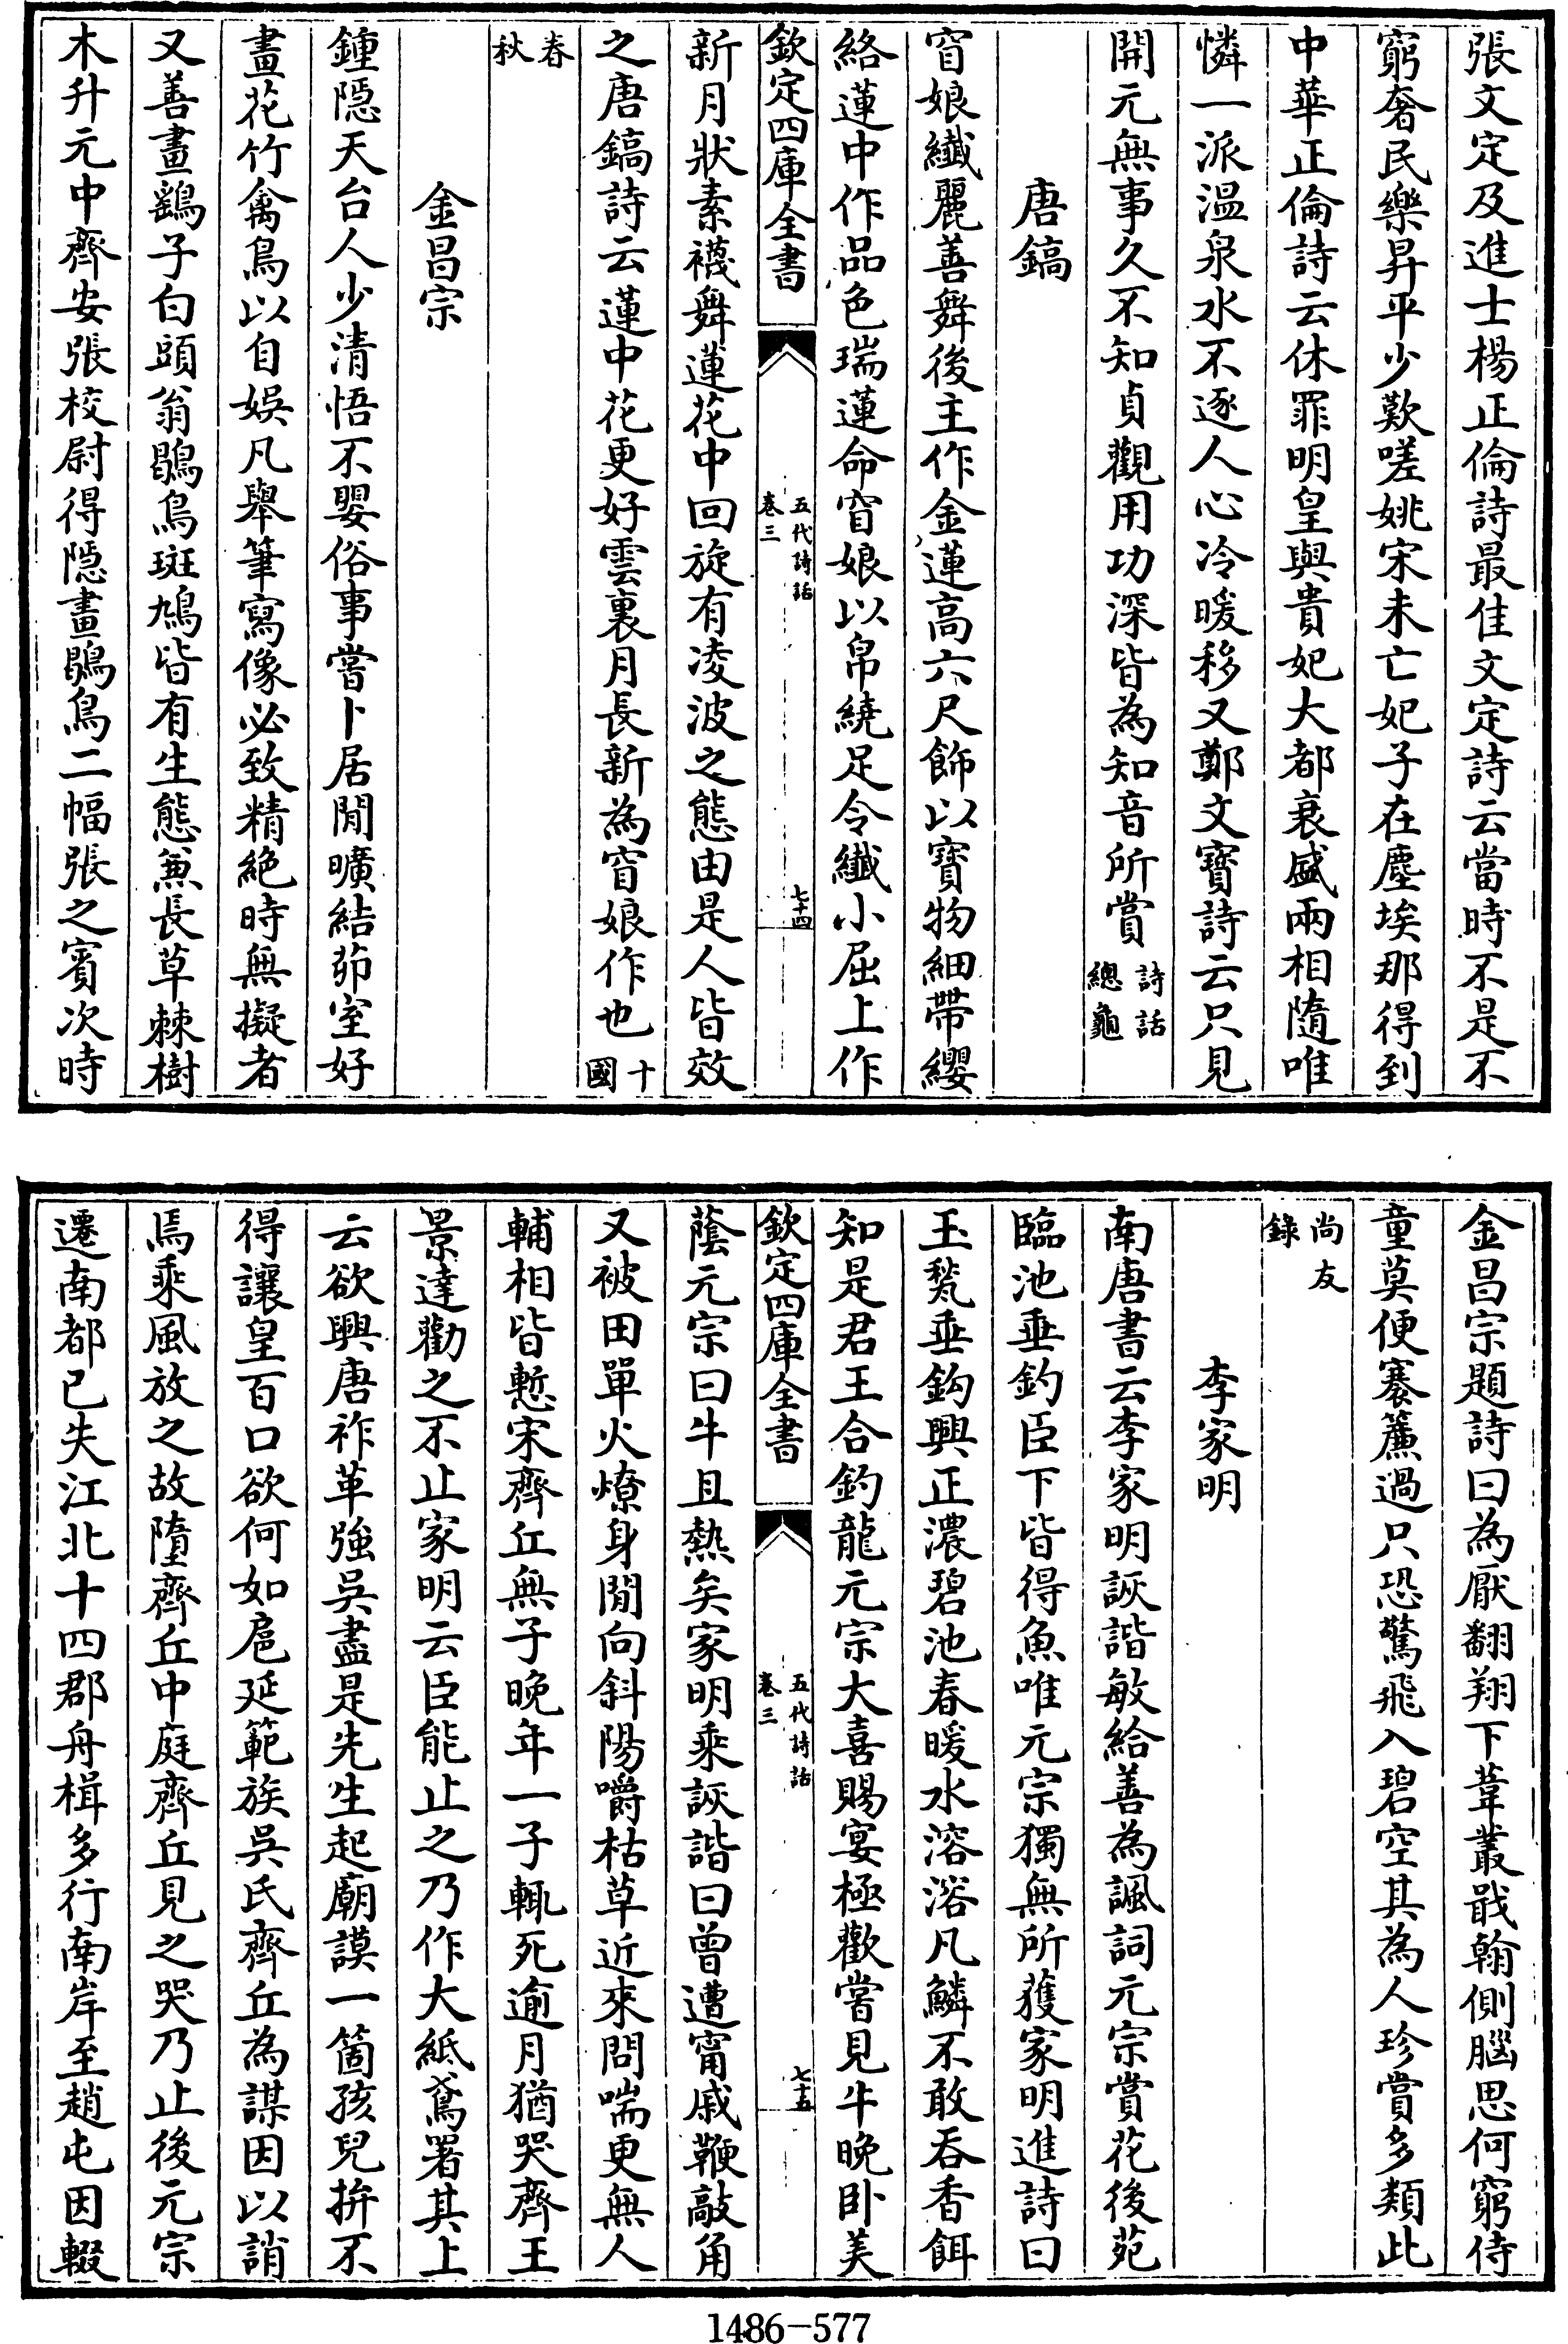 張文定及進士楊正倫詩最佳文定詩云當時不是不
窮奢民樂昇平少歎嗟姚宋未亡妃子在塵埃那得到
中華正倫詩云休罪明皇與貴妃大都衰盛兩相隨唯
憐一派温泉水不逐人心冷暖移又鄭文寶詩云只見
開元無事久不知貞觀用功深皆為知音所賞詩話總龜
唐鎬
窅娘纖麗善舞後主作金蓮高六尺飾以寶物細帶纓
絡蓮中作品色瑞蓮命窅娘以帛繞足令纖小屈上作
欽定四庫全書 五代詩話 卷三 七十四
新月狀素襪舞蓮花中回旋有凌波之態由是人皆效
之唐鎬詩云蓮中花更好雲裏月長新為窅娘作也十國
春秋
金昌宗
鍾隠天台人少清悟不嬰俗事嘗卜居閒曠結茆室好
畫花竹禽鳥以自娛凡舉筆寫像必致精絶時無擬者
又善畫鷂子白頭翁鶡鳥斑鳩皆有生態兼長草棘樹
木升元中齊安張校尉得隠畫鶡鳥二幅張之賓次時
金昌宗題詩曰為厭翻翔下葦叢戢翰側腦思何窮侍
童莫便褰簾過只恐驚飛入碧空其為人珍賞多類此
尚友錄
李家明
南唐書云李家明詼諧敏給善為諷詞元宗賞花後苑
臨池垂釣臣下皆得魚唯元宗獨無所獲家明進詩曰
玉甃垂鈎興正濃碧池春暖水溶溶凡鱗不敢吞香餌
知是君王合釣龍元宗大喜賜宴極歡嘗見牛晩卧美
欽定四庫全書 五代詩話 卷三 七十五
蔭元宗曰牛且熱矣家明乘詼諧曰曾遭甯戚鞭敲角
又被田單火燎身閒向斜陽嚼枯草近來問喘更無人
輔相皆慙宋齊丘無子晚年一子輒死逾月猶哭齊王
景達勸之不止家明云臣能止之乃作大紙鳶署其上
云欲興唐祚革強吳盡是先生起廟謨一箇孩兒拚不
得讓皇百口欲何如扈延範族吳氏齊丘為謀因以誚
焉乘風放之故墮齊丘中庭齊丘見之哭乃止後元宗
遷南都已失江北十四郡舟楫多行南岸至趙屯因輟
1486-577